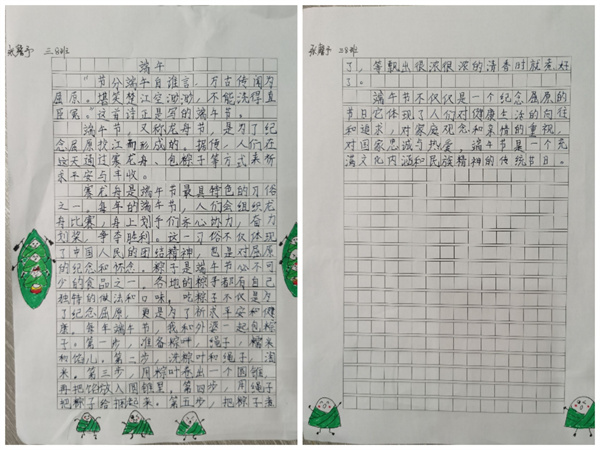 张馨予 三8班
端午
“节分端午自谁言，万古传闻为
屈原。堪笑楚江空渺渺，不能洗得直
臣冤。”这首诗正是写的端午节。
端午节，又称龙舟节，是为了纪
念屈原投江而形成的。据传，人们在
这天通过赛龙舟、包粽子等方式来祈
求平安与丰收。
赛龙舟是端午节最具特色的习俗
之一。每年的端午节，人们会组织龙
舟比赛，舟上划手们齐心协力，奋力
划桨，争夺胜利。这一习俗不仅体现
了中国人民的团结精神，也是对屈原
的纪念和怀念。粽子是端午节必不可
少的食品之一。各地的粽子都有自己
独特的做法和口味。吃粽子不仅是为
了纪念屈原，更是为了祈求平安和健
康。每年端午节，我和外婆一起包粽
子。第一步，准备粽叶，绳子，糯米
和馅儿。第二步，洗粽叶和绳子，淘
米。第三步，用粽叶卷出一个圆锥，
再把馅放入圆锥里。第四步，用绳子
把粽子给捆起来。第五步，把粽子煮
张馨予 三8班
了，等飘出很浓很浓的清香时就煮好
了。
端午节不仅仅是一个纪念屈原的
节日它体现了人们对健康生活的向往
和追求，对家庭观念和亲情的重视，
对国家忠诚与热爱，端午节是一个充
满文化内涵和民族精神的传统节日。